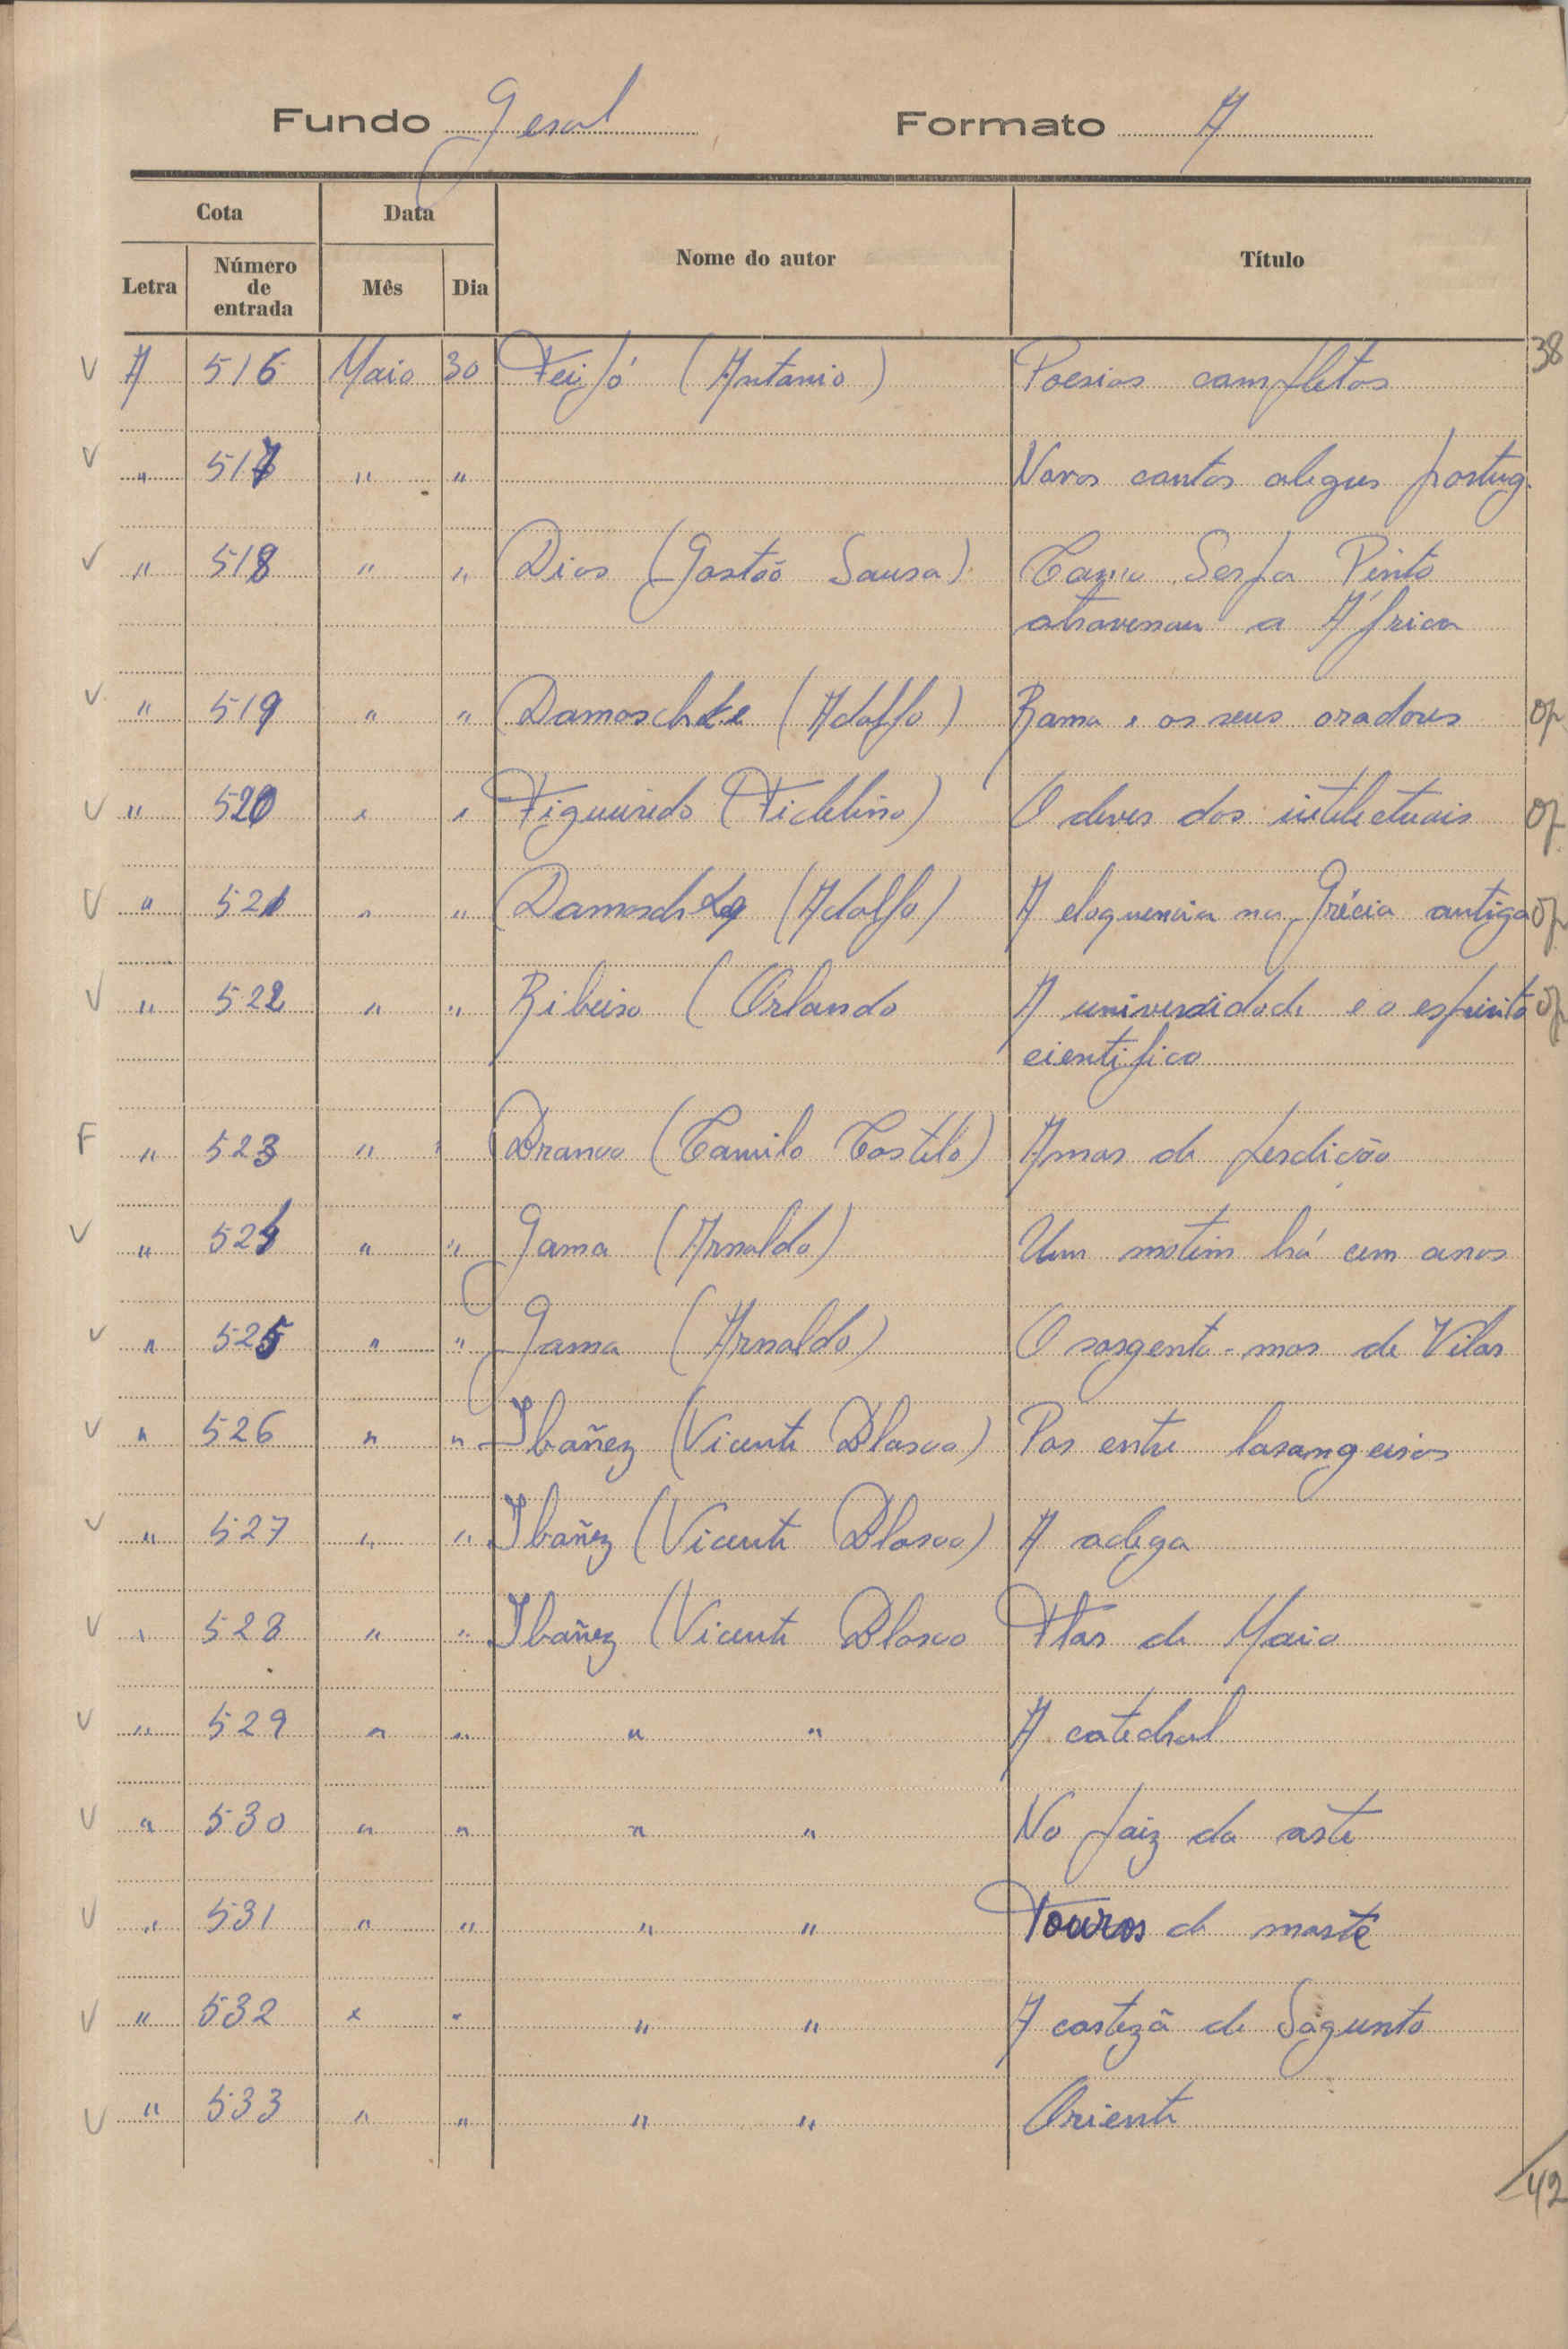 Fundo Geral Formato A
Cota Data Nome do autor Título
Letra Número de entrada Mês Dia
38
V A 516 Maio 30 Feijó (Antonio) Poesias completas
V " 517 " " Novos contos alegres portug.
V " 518 " " Dias (Gastão Sousa) Como Serpa Pinto
atravessou a África
V " 519 " " Damaschke (Adolfo) Roma e os seus oradores op
V " 520 " " Figueiredo (Fidelino) O dever dos intelectuais op
V " 521 " " Damaschke (Adolfo) A eloquencia na Grécia antiga op
V " 522 " " Ribeiro (Orlando A universidade e o espirito op
cientifico
F " 523 " " Branco (Camilo Castelo) Amor de perdição
V " 524 " " Gama (Arnaldo) Um motim há cem anos
V " 525 " " Gama (Arnaldo) O sargento-mor de Vilar
V " 526 " " Ibañez (Vicente Blasco) Por entre laranjeiras
V " 527 " " Ibañez (Vicente Blasco) A adega
V " 528 " " Ibañez (Vicente Blasco Flor de Maio
V " 529 " " " " A catedral
V " 530 " " " " No paiz da arte
V " 531 " " " " Touros de morte
V " 532 " " " " A cortezã de Sagunto
V " 533 " " " " Oriente
42